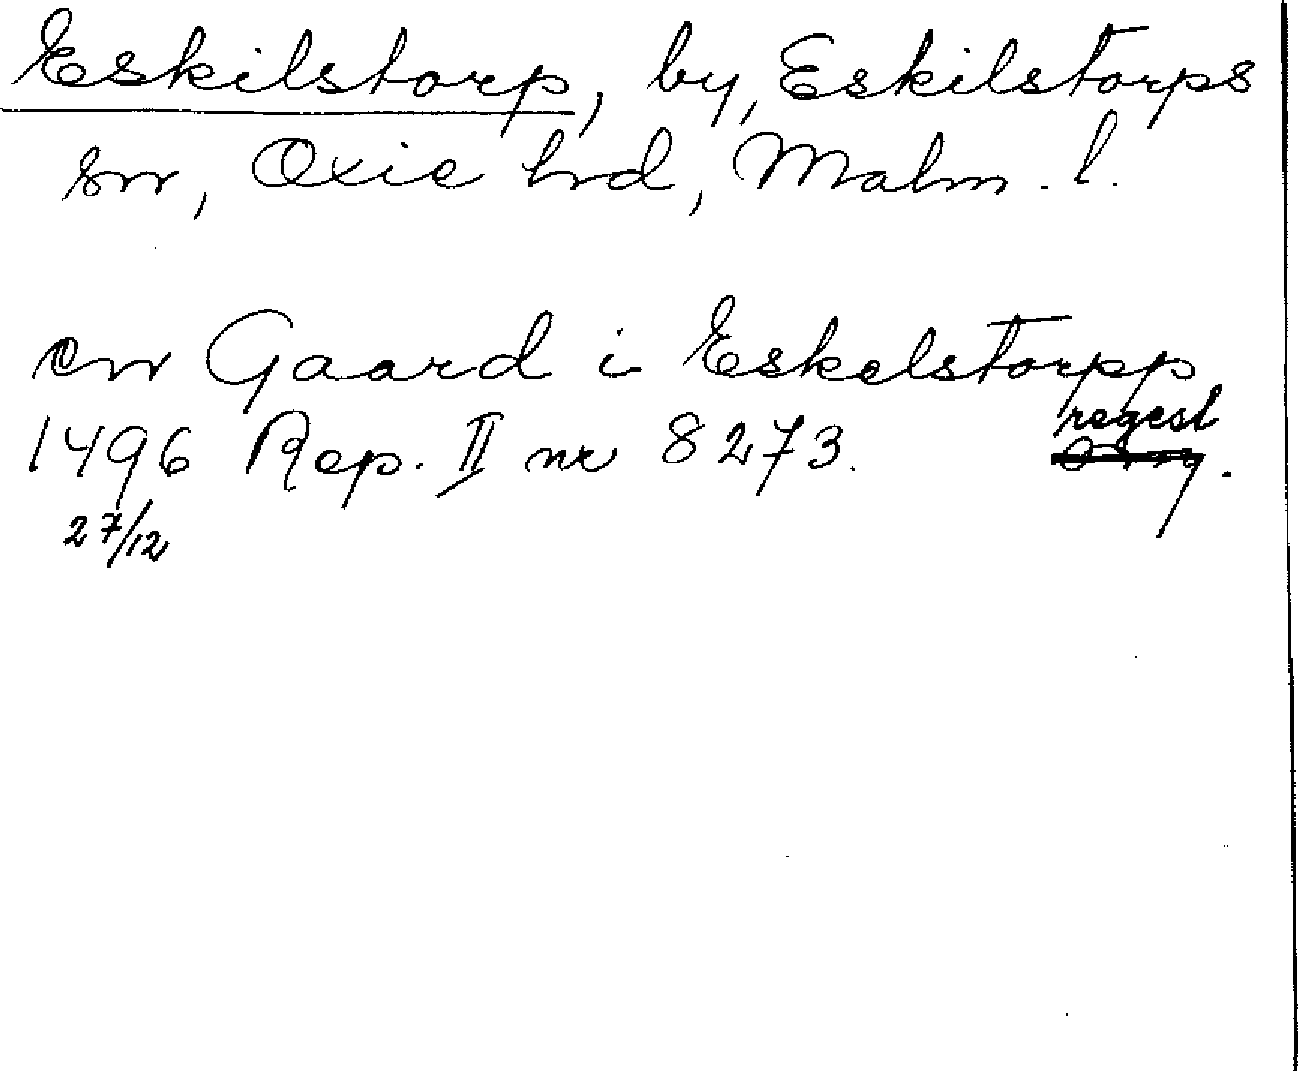 Eskilstorp, by, Eskilstorps
sn, Oxie hrd, Malm. l.
en Gaard i Eskelstorpp
1496 Rep. II nr 8273. regest
27/12